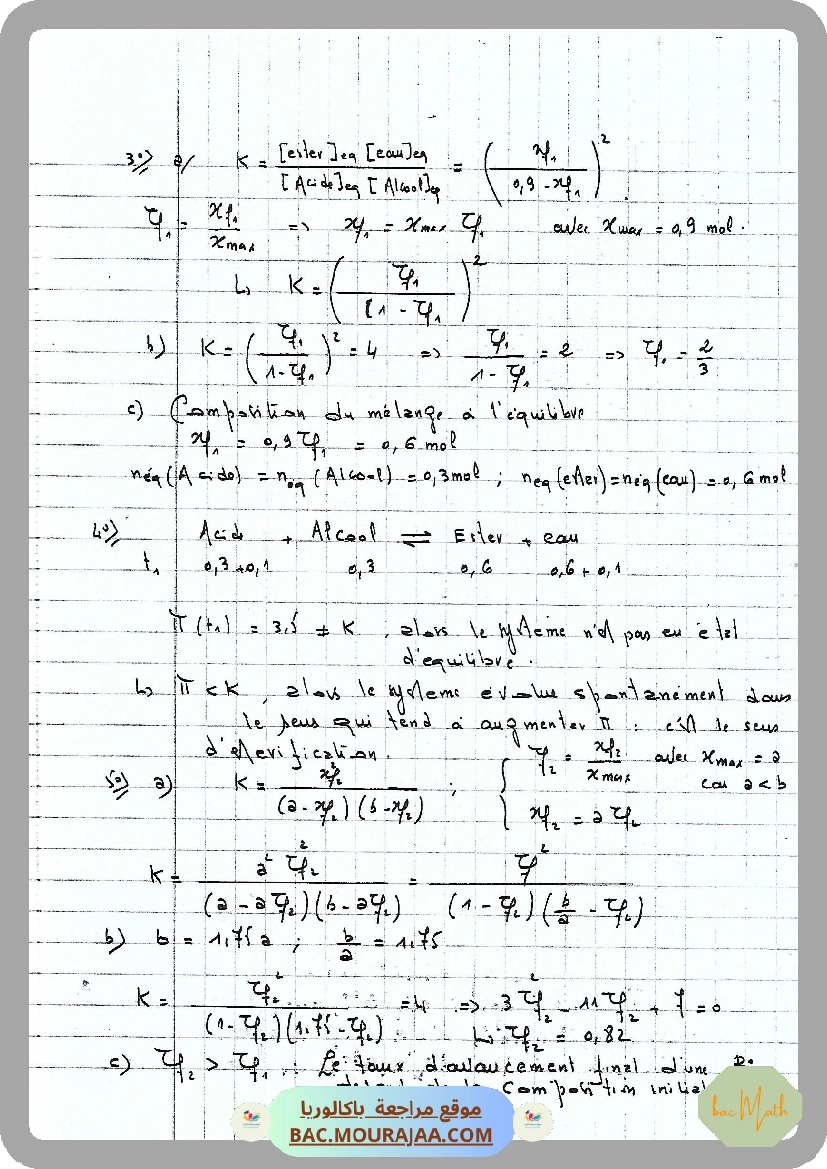 3°) a/ K = [ester]eq [eau]eq / [Acide]eq [Alcool]eq = (xf₁ / 0,9 - xf₁)²
τf₁ = xf₁ / xmax => xf₁ = xmax τf₁ avec xmax = 0,9 mol.
↳ K = (τf₁ / (1 - τf₁)²
b) K = (τf₁ / 1 - τf₁)² = 4 => τf₁ / 1 - τf₁ = 2 => τf₁ = 2/3
c) Composition du mélange à l'équilibre
xf₁ = 0,9 τf₁ = 0,6 mol
néq(Acide) = néq(Alcool) = 0,3mol ; néq(ester) = néq(eau) = 0,6 mol
4°) Acide + Alcool ⇌ Ester + eau
t₁ 0,3+0,1 0,3 0,6 0,6 + 0,1
π(t₁) = 3,5 ≠ K , alors le système n'est pas en état
d'équilibre.
↳ π < K , alors le système évolue spontanément dans
le sens qui tend à augmenter π : c'est le sens
d'esterification.
5°) a) K = xf₂² / (a - xf₂)(b - xf₂) ; { τf₂ = xf₂ / xmax avec xmax = a
car a < b
xf₂ = a τf₂
K = a² τf₂² / (a - aτf₂)(b - aτf₂) = τf² / (1 - τf₂)(b/a - τf₂)
b) b = 1,75 a ; b/a = 1,75
K = τf₂² / (1 - τf₂)(1,75 - τf₂) = 4 => 3 τf₂² - 11 τf₂ + 7 = 0
↳ τf₂ = 0,82
c) τf₂ > τf₁ : Le taux d'avancement final d'une
composition initial
موقع مراجعة باكالوريا
BAC.MOURAJAA.COM
bac Math